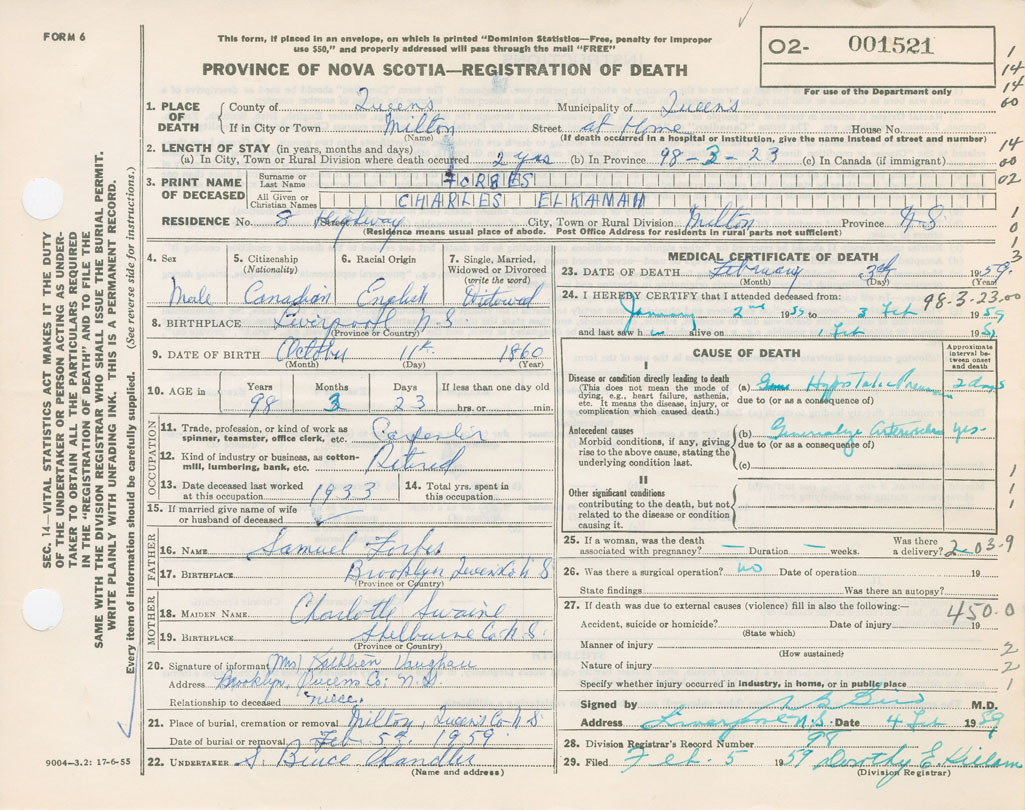 FORM 6
This form, if placed in an envelope, on which is printed "Dominion Statistics—Free, penalty for improper
use $50," and properly addressed will pass through the mail "FREE"
PROVINCE OF NOVA SCOTIA—REGISTRATION OF DEATH
O2- 001521
For use of the Department only
1
14
14
60
14
00
02
1
0
1
3
SEC. 14—VITAL STATISTICS ACT MAKES IT THE DUTY
OF THE UNDERTAKER OR PERSON ACTING AS UNDER-
TAKER TO OBTAIN ALL THE PARTICULARS REQUIRED
IN THE "REGISTRATION OF DEATH" AND TO FILE THE
SAME WITH THE DIVISION REGISTRAR WHO SHALL ISSUE THE BURIAL PERMIT.
WRITE PLAINLY WITH UNFADING INK. THIS IS A PERMANENT RECORD.
Every item of information should be carefully supplied. (See reverse side for instructions.)
1. PLACE OF DEATH
County of Queens Municipality of Queens
If in City or Town Milton Street at Home House No.
(Name) (If death occurred in a hospital or Institution, give the name instead of street and number)
2. LENGTH OF STAY (in years, months and days)
(a) In City, Town or Rural Division where death occurred 2 yrs (b) In Province 98-3-23 (c) In Canada (if immigrant)
3. PRINT NAME OF DECEASED
Surname or Last Name FORBES
All Given or Christian Names CHARLES ELKANAH
RESIDENCE No. 8 Highway City, Town or Rural Division Milton Province N-S
(Residence means usual place of abode. Post Office Address for residents in rural parts not sufficient)
4. Sex
Male
5. Citizenship
(Nationality)
Canadian
6. Racial Origin
English
7. Single, Married,
Widowed or Divorced
(write the word)
Widowed
8. BIRTHPLACE Liverpool N.S.
(Province or Country)
9. DATE OF BIRTH October 11th 1860
(Month) (Day) (Year)
10. AGE in
Years 98
Months 3
Days 23
If less than one day old
hrs. or min.
OCCUPATION
11. Trade, profession, or kind of work as
spinner, teamster, office clerk, etc. Carpenter
12. Kind of industry or business, as cotton-
mill, lumbering, bank, etc. Retired
13. Date deceased last worked
at this occupation 1933
14. Total yrs. spent in
this occupation
15. If married give name of wife
or husband of deceased
FATHER
16. NAME Samuel Forbes
17. BIRTHPLACE Brooklyn Queens Co N S
(Province or Country)
MOTHER
18. MAIDEN NAME Charlotte Swaine
19. BIRTHPLACE Shelburne Co N.S.
(Province or Country)
20. Signature of informant (Mrs) Kathleen Vaughan
Address Brooklyn, Queens Co. N.S.
Relationship to deceased niece.
21. Place of burial, cremation or removal Milton, Queen's Co N.S
Date of burial or removal Feb 5th 1959
22. UNDERTAKER S. Bruce Chandler
(Name and address)
9004—3.2: 17-6-55
MEDICAL CERTIFICATE OF DEATH
23. DATE OF DEATH February 3rd 1959.
(Month) (Day) (Year)
24. I HEREBY CERTIFY that I attended deceased from: 98-3-23.00
January 2nd 1959 to 3 Feb 1959
and last saw him alive on 1 Feb 1959
CAUSE OF DEATH
Approximate
interval be-
tween onset
and death
I
Disease or condition directly leading to death
(This does not mean the mode of
dying, e.g., heart failure, asthenia,
etc. It means the disease, injury, or
complication which caused death.)
(a) 2 days
due to (or as a consequence of)
Antecedent causes
Morbid conditions, if any, giving
rise to the above cause, stating the
underlying condition last.
(b) yrs-
due to (or as a consequence of)
(c)
II
Other significant conditions
contributing to the death, but not
related to the disease or condition
causing it.
1
1
1
25. If a woman, was the death
associated with pregnancy? — Duration — weeks. Was there
a delivery? 2-03-9
26. Was there a surgical operation? no Date of operation 19
State findings Was there an autopsy?
27. If death was due to external causes (violence) fill in also the following:— 450.0
Accident, suicide or homicide? Date of injury 19
(State which)
Manner of injury 2
(How sustained)
Nature of injury 2
Specify whether injury occurred in industry, in home, or in public place 1
Signed by M.D.
Address Liverpool N.S. Date 4 Feb 1959
28. Division Registrar's Record Number 98
29. Filed Feb. 5 1959 Dorothy E. Killam
(Division Registrar)